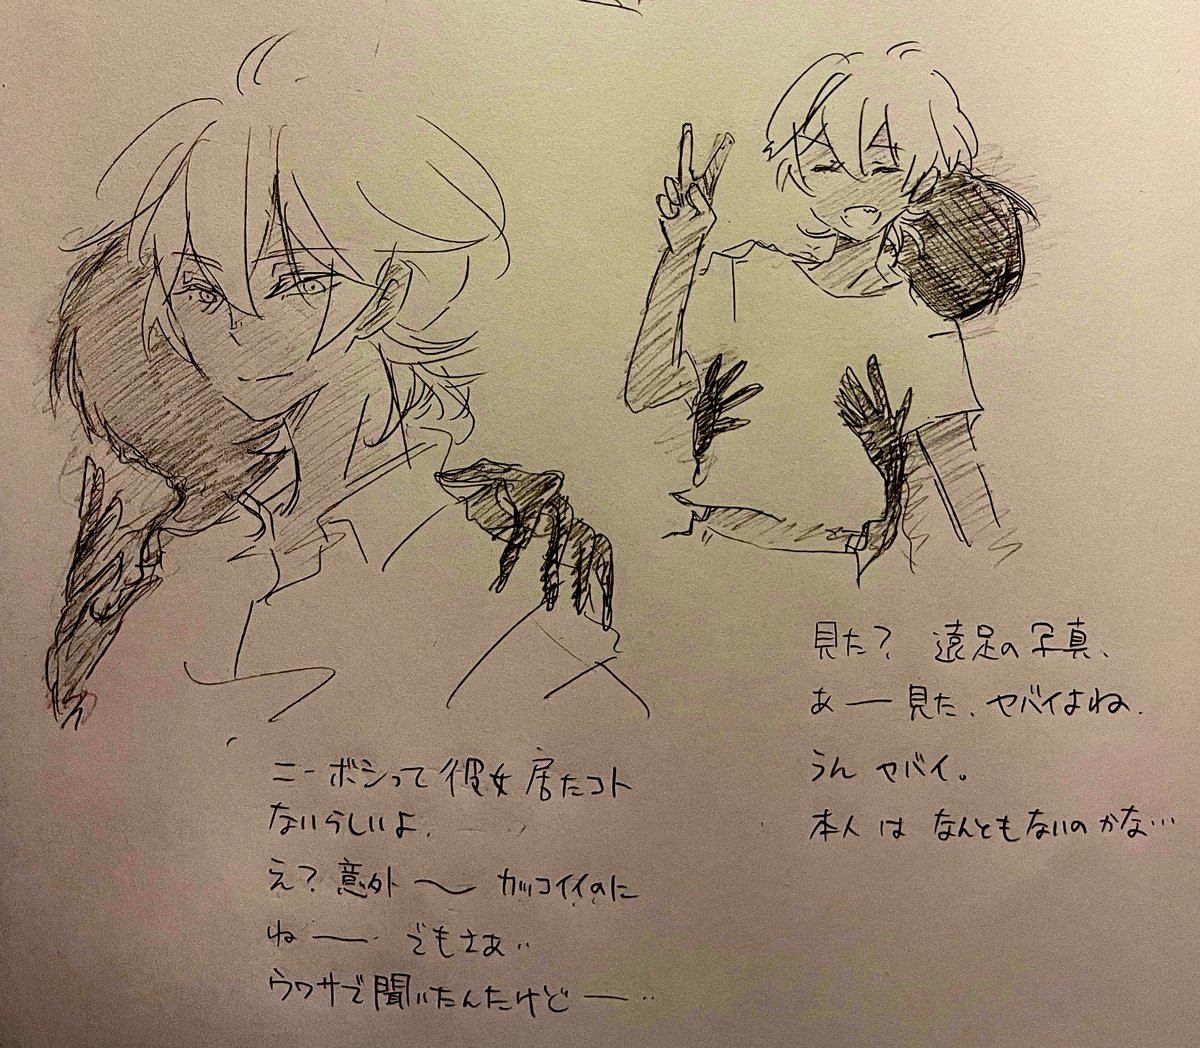 見た？ 遠足の写真、
あー見た、ヤバイよね、
うん ヤバイ。
本人は なんともないのかな…
ニーボシって彼女居たコト
ないらしいよ、
え？意外〜 カッコイイのに
ねー でもさぁ‥
ウワサで聞いたんだけどー‥